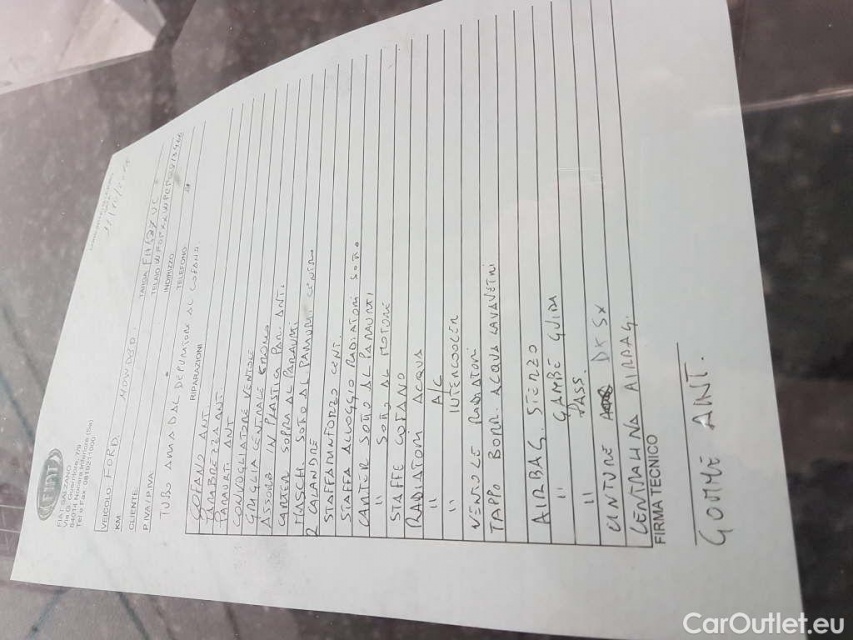 FIAT
VEICOLO FORD MONDEO
KM
CLIENTE TARGA
P.IVA/P.IVA TELAIO
INDIRIZZO
TELEFONO
TUBO ARIA DAL DEPURATORE AL COFANO
RIPARAZIONI
COFANO ANT
PARABREZZA ANT.
PARAURTI ANT
CONVOGLIATORE VENTOLE
GRIGLIA CENTRALE
IN PLASTICA PAR. ANT.
CARTER SOPRA AL PARAURTI
SOTTO AL PARAURTI CENTRO
2 CALANDRE
STAFFA RINFORZO CENT.
STAFFA ALLOGGIO RADIATORI SOTTO
CARTER SOTTO AL PARAURTI
" SOTTO AL MOTORE
STAFFE COFANO
RADIATORI ACQUA
" A/C
" INTERCOOLER
VENTOLE RADIATORI
TAPPO BOCC. ACQUA LAVAVETRI
AIRBAG STERZO
" GAMBE GUIDA
" PASS.
CINTURE DX SX
CENTRALINA AIRBAG.
FIRMA TECNICO
GOMME ANT.
CarOutlet.eu